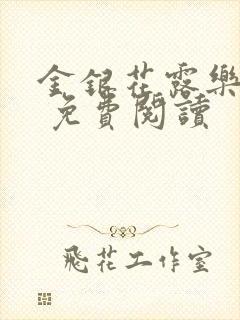 金銀花露樂
免費閱讀
飛花工作室